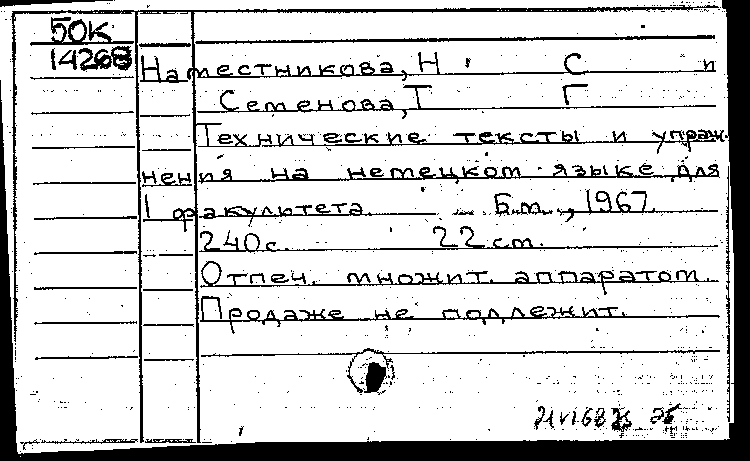 50К
14268
Наместникова, Н С и
Семенова, Т Г
Технические тексты и упраж-
нения на немецком языке для
I факультета. Б.м., 1967.
240с. 22 cm.
Отпеч. множит. аппаратом.
Продаже не подлежит.